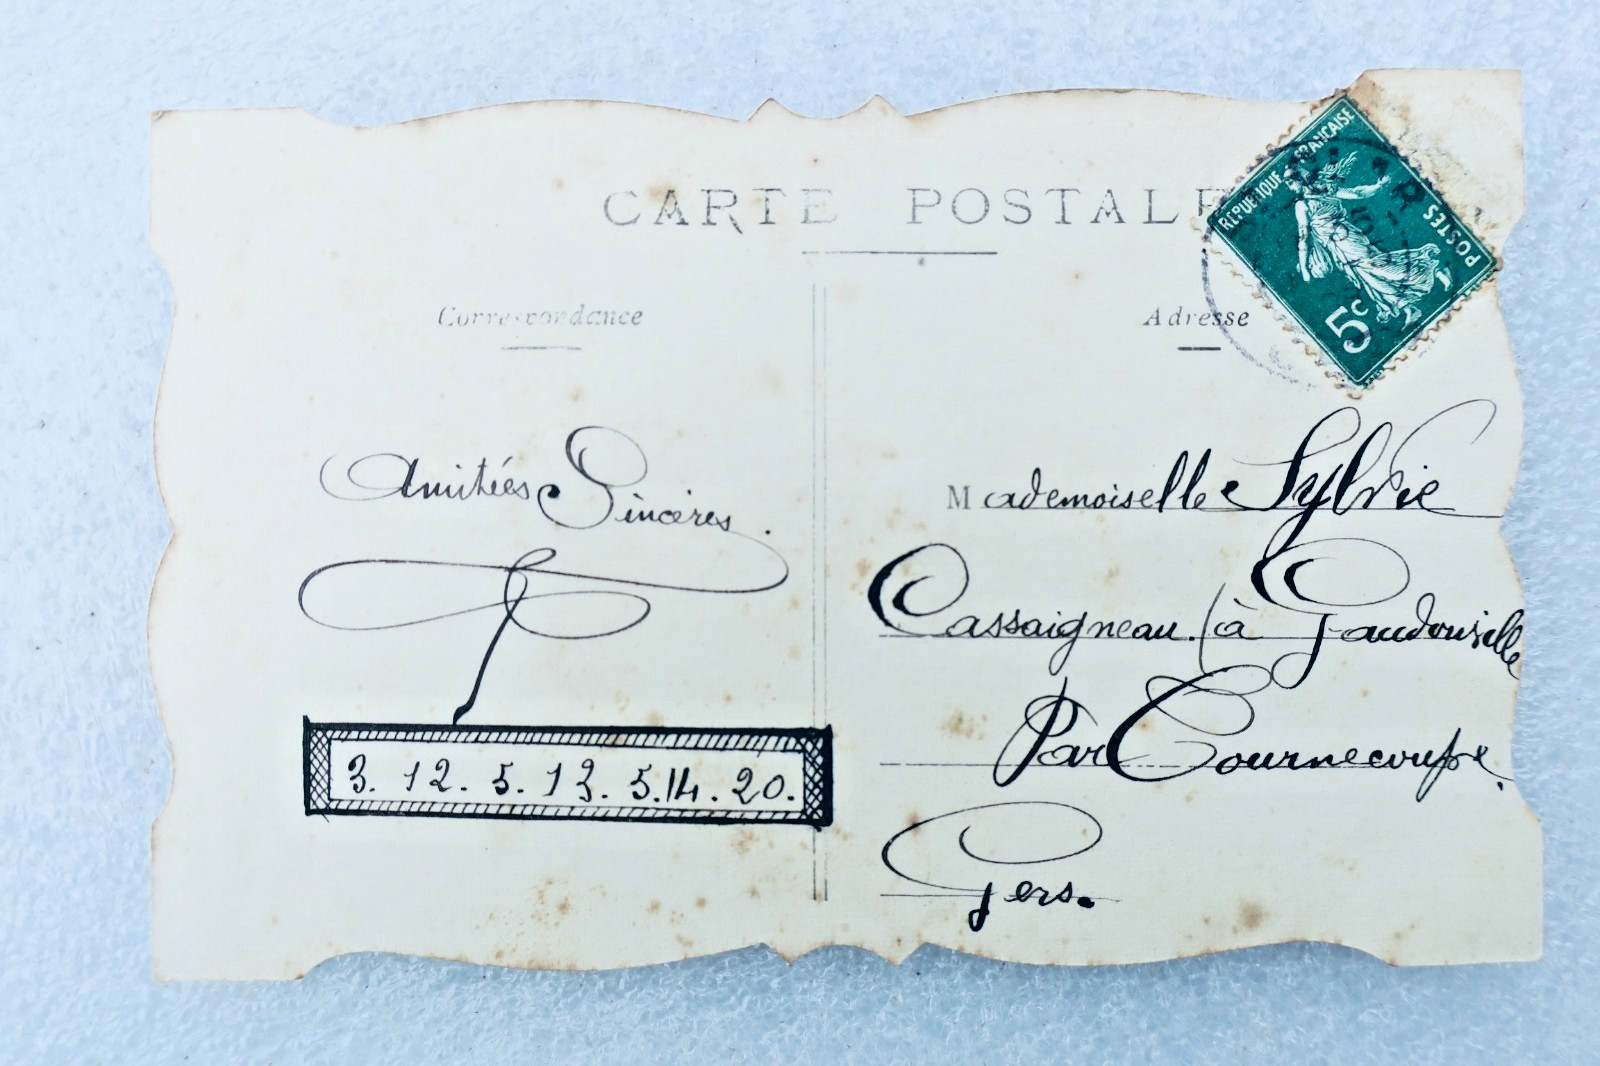 CARTE POSTALE
RÉPUBLIQUE FRANÇAISE
POSTES
5c
Correspondance
Adresse
Amitiés Sincères.
3. 12. 5. 13. 5. 14. 20.
Mademoiselle Sylvie
Cassaigneau. (à Gaudouville
Par Tournecoupe.
Gers.